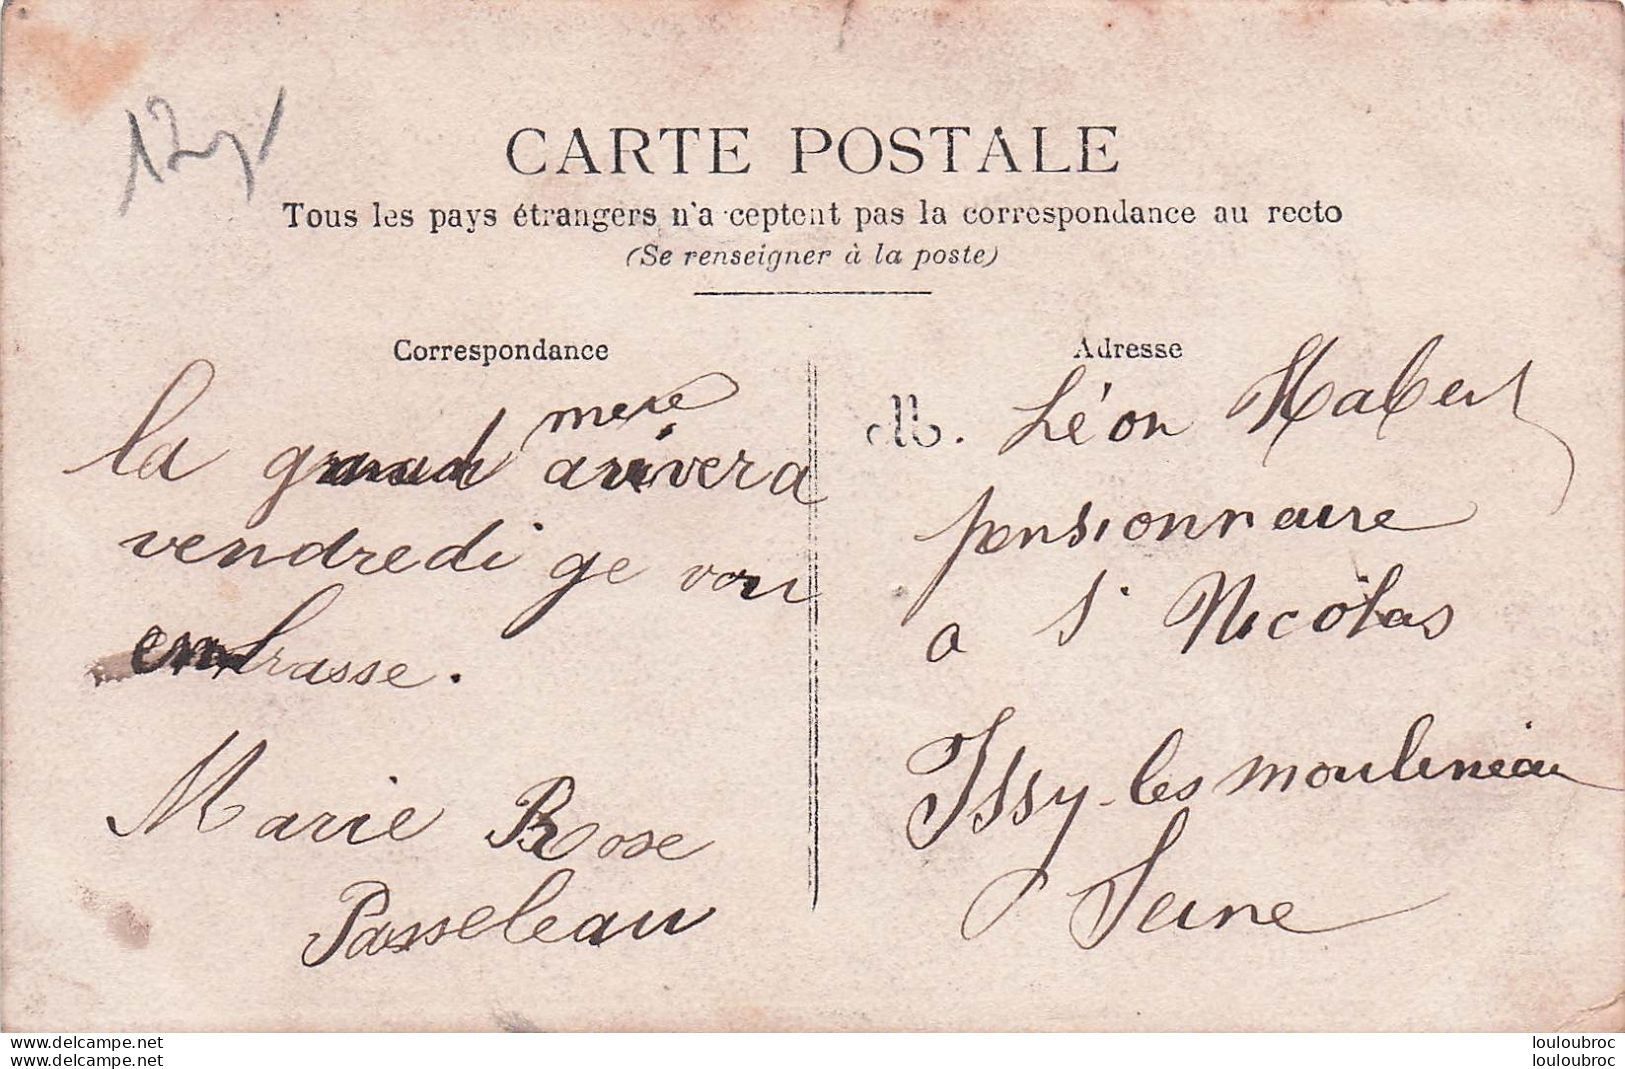 CARTE POSTALE
Tous les pays étrangers n'acceptent pas la correspondance au recto
(Se renseigner à la poste)
Correspondance
la grand mere arivera
vendredi ge vou
embrasse.
Marie Rose
Passeleau
Adresse
M. Léon Habert
pensionnaire
a St Nicolas
Issy-les moulineau
Seine
www.delcampe.net
www.delcampe.net
louloubroc
louloubroc